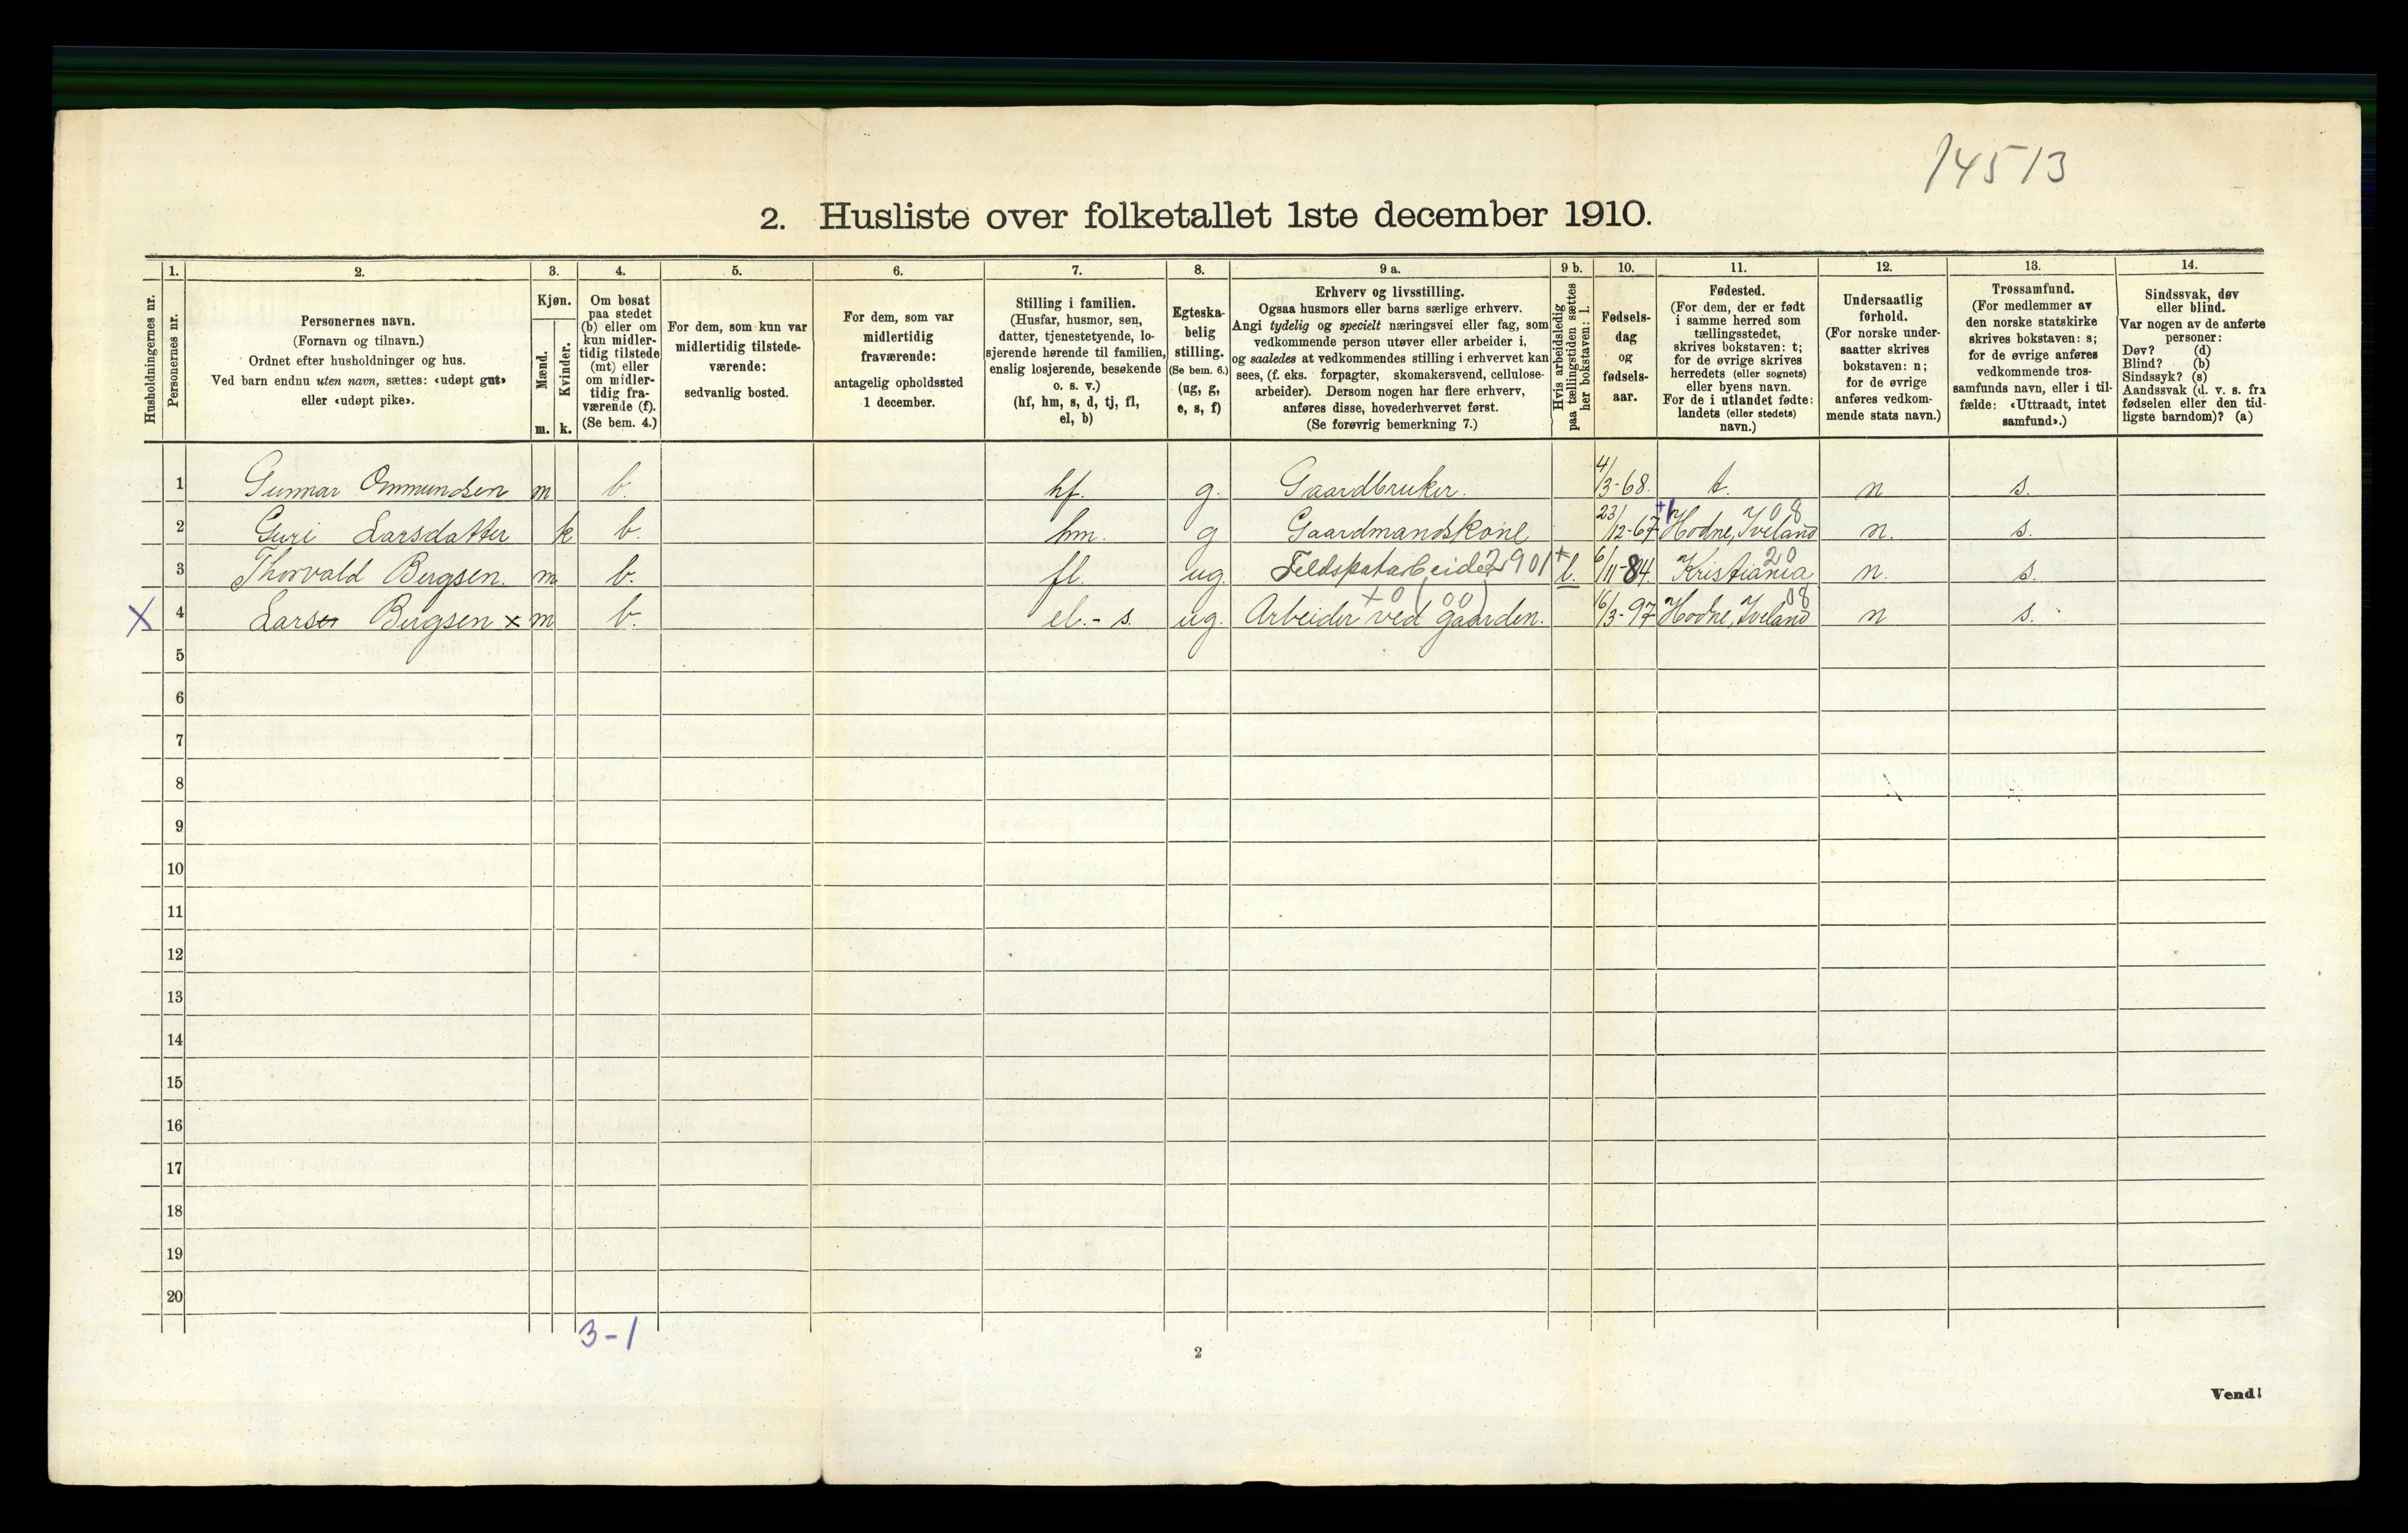 14513
2. Husliste over folketallet 1ste december 1910.
Husholdningernes nr.
1.
Personernes nr.
2.
Personernes navn.
(Fornavn og tilnavn.)
Ordnet efter husholdninger og hus.
Ved barn endnu uten navn, sættes: «udøpt gut»
eller «udøpt pike».
3.
Kjøn.
Mænd.
Kvinder.
m. k.
4.
Om bosat
paa stedet
(b) eller om
kun midler-
tidig tilstede
(mt) eller
om midler-
tidig fra-
værende (f).
(Se bem. 4.)
5.
For dem, som kun var
midlertidig tilstede-
værende:
sedvanlig bosted.
6.
For dem, som var
midlertidig
fraværende:
antagelig opholdssted
1 december.
7.
Stilling i familien.
(Husfar, husmor, søn,
datter, tjenestetyende, lo-
sjerende hørende til familien,
enslig losjerende, besøkende
o. s. v.)
(hf, hm, s, d, tj, fl,
el, b)
8.
Egteska-
belig
stilling.
(Se bem. 6.)
(ug, g,
e, s, f)
9 a.
Erhverv og livsstilling.
Ogsaa husmors eller barns særlige erhverv.
Angi tydelig og specielt næringsvei eller fag, som
vedkommende person utøver eller arbeider i,
og saaledes at vedkommendes stilling i erhvervet kan
sees, (f. eks. forpagter, skomakersvend, cellulose-
arbeider). Dersom nogen har flere erhverv,
anføres disse, hovederhvervet først.
(Se forøvrig bemerkning 7.)
9 b.
Hvis arbeidsledig
paa tællingstiden sættes
her bokstaven: l.
10.
Fødsels-
dag
og
fødsels-
aar.
11.
Fødested.
(For dem, der er født
i samme herred som
tællingsstedet,
skrives bokstaven: t;
for de øvrige skrives
herredets (eller sognets)
eller byens navn.
For de i utlandet fødte:
landets (eller stedets)
navn.)
12.
Undersaatlig
forhold.
(For norske under-
saatter skrives
bokstaven: n;
for de øvrige
anføres vedkom-
mende stats navn.)
13.
Trossamfund.
(For medlemmer av
den norske statskirke
skrives bokstaven: s;
for de øvrige anføres
vedkommende tros-
samfunds navn, eller i til-
fælde: «Uttraadt, intet
samfund».)
14.
Sindssvak, døv
eller blind.
Var nogen av de anførte
personer:
Døv? (d)
Blind? (b)
Sindssyk? (s)
Aandssvak (d. v. s. fra
fødselen eller den tid-
ligste barndom)? (a)
1 Gunnar Ommundsen m b. hf. g. Gaardbruker. 4/3-68. t. n s.
2 Guri Larsdatter k b. hm. g Gaardmandskone 23/12-67 Hodne, Iveland 08 n. s.
3 Thorvald Bergsen. m b. fl. ug. Feldspatarbeider 2901 + l. 6/11-84. Kristiania 20 n. s.
X 4 Lars Bergsen x m b. el. - s. ug. Arbeider ved gaarden. +0 (00) 16/3-97 Hodne, Iveland 08 n s.
5
6
7
8
9
10
11
12
13
14
15
16
17
18
19
20
3-1
2
Vend!